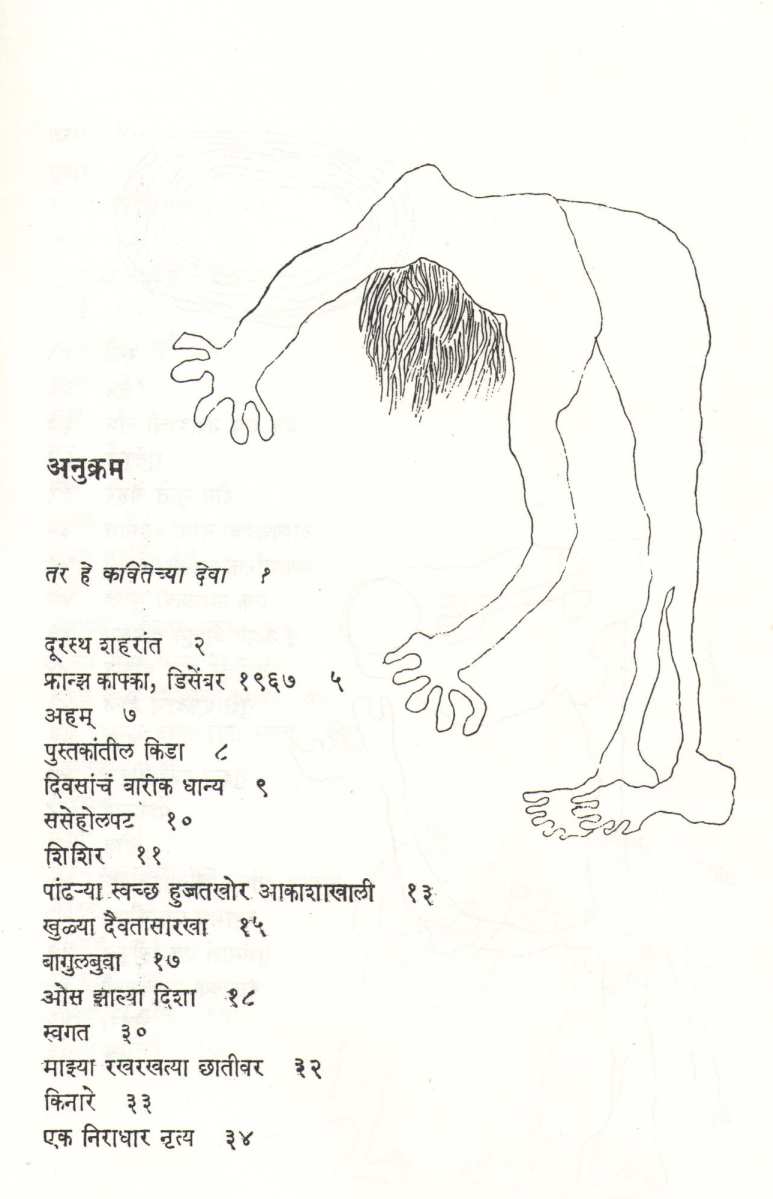 अनुक्रम
तर हे कवितेच्या देवा १
दूरस्थ शहरांत २
फ्रान्झ काफ्का, डिसेंबर १९६७ ५
अहम् ७
पुस्तकांतील किडा ८
दिवसांचं बारीक धान्य ९
ससेहोलपट १०
शिशिर ११
पांढऱ्या स्वच्छ हुज्जतखोर आकाशाखाली १३
खुळ्या दैवतासारखा १५
बागुलबुवा १७
ओस झाल्या दिशा १८
स्वगत ३०
माझ्या रखरखत्या छातीवर ३२
किनारे ३३
एक निराधार नृत्य ३४